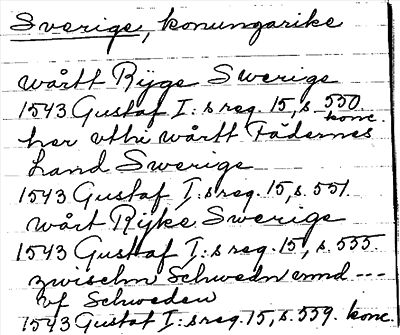 Sverige, konungarike
wårtt Rijge Swerige
1543 Gustaf I:s reg. 15, s. 550. konc.
her vthi wårtt Fädernes
Land Swerige
1543 Gustaf I:s reg. 15, s. 551.
wårt Rijke Swerige
1543 Gustaf I:s reg. 15, s. 555.
zwischn Schwedn vnnd ---
vf Schweden
1543 Gustaf I:s reg. 15, s. 559. konc.